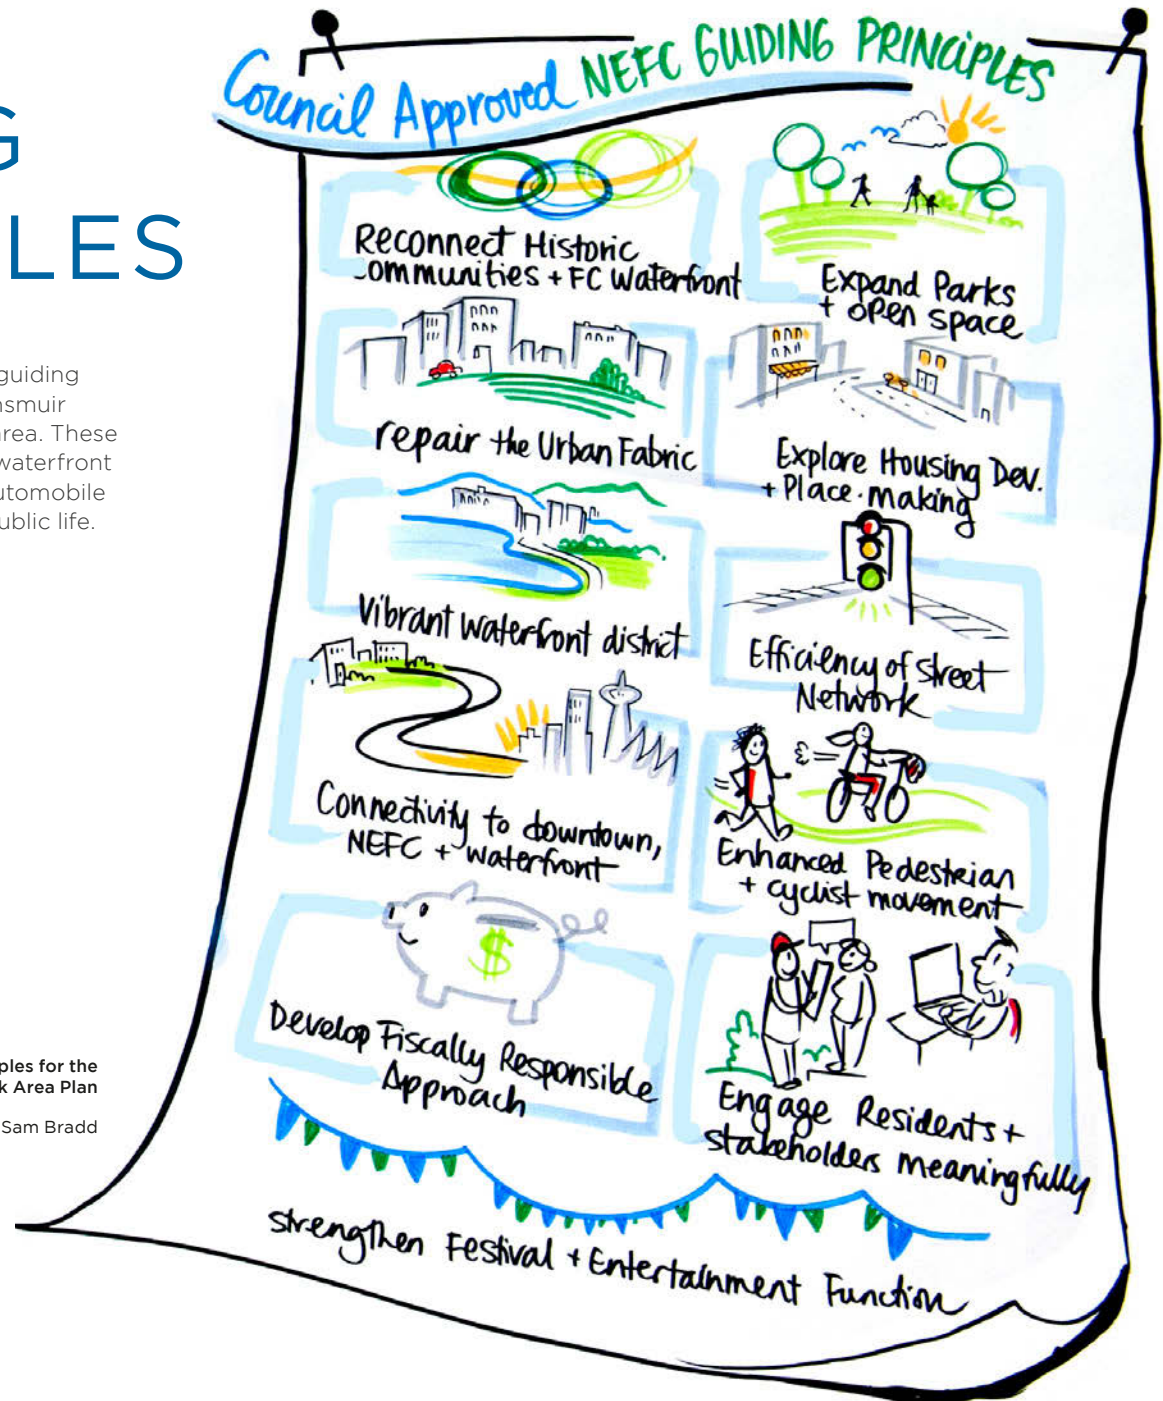 G
LES
guiding
nsmuir
area. These
waterfront
utomobile
ublic life.
ples for the
k Area Plan
Sam Bradd
Council Approved NEFC GUIDING PRINCIPLES
Reconnect Historic
communities + FC Waterfront
Expand Parks
+ open space
repair the Urban Fabric
Explore Housing Dev.
+ Place-making
Vibrant waterfront district
Efficiency of Street
Network
Connectivity to downtown,
NEFC + waterfront
Enhanced Pedestrian
+ cyclist movement
$
Develop Fiscally Responsible
Approach
Engage Residents +
stakeholders meaningfully
strengthen Festival + Entertainment Function